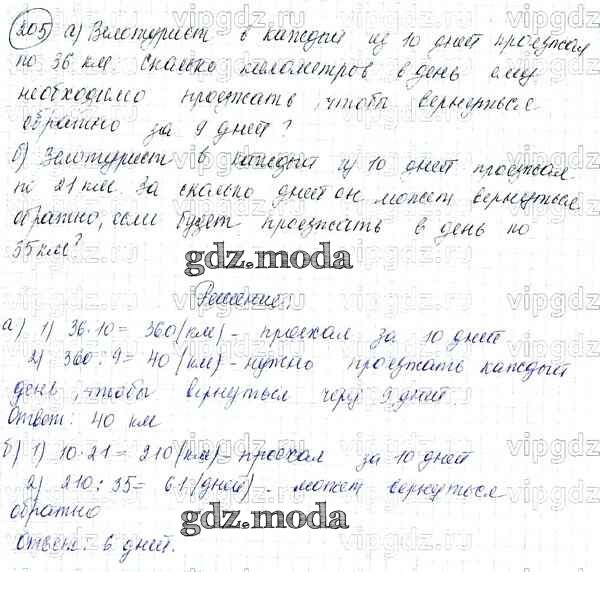 205 а) Велотурист в каждый из 10 дней проезжал
по 36 км. Сколько километров в день ему
необходимо проезжать, чтобы вернуться
обратно за 9 дней?
б) Велотурист в каждый из 10 дней проезжал
по 21 км. За сколько дней он может вернуться
обратно, если будет проезжать в день по
35 км?
gdz.moda
Решение:
а) 1) 36·10 = 360 (км) - проехал за 10 дней
2) 360 : 9 = 40 (км) - нужно проезжать каждый
день, чтобы вернуться через 9 дней
Ответ: 40 км
б) 1) 10·21 = 210 (км) - проехал за 10 дней
2) 210 : 35 = 6 (дней) - может вернуться
обратно
gdz.moda
Ответ: 6 дней.